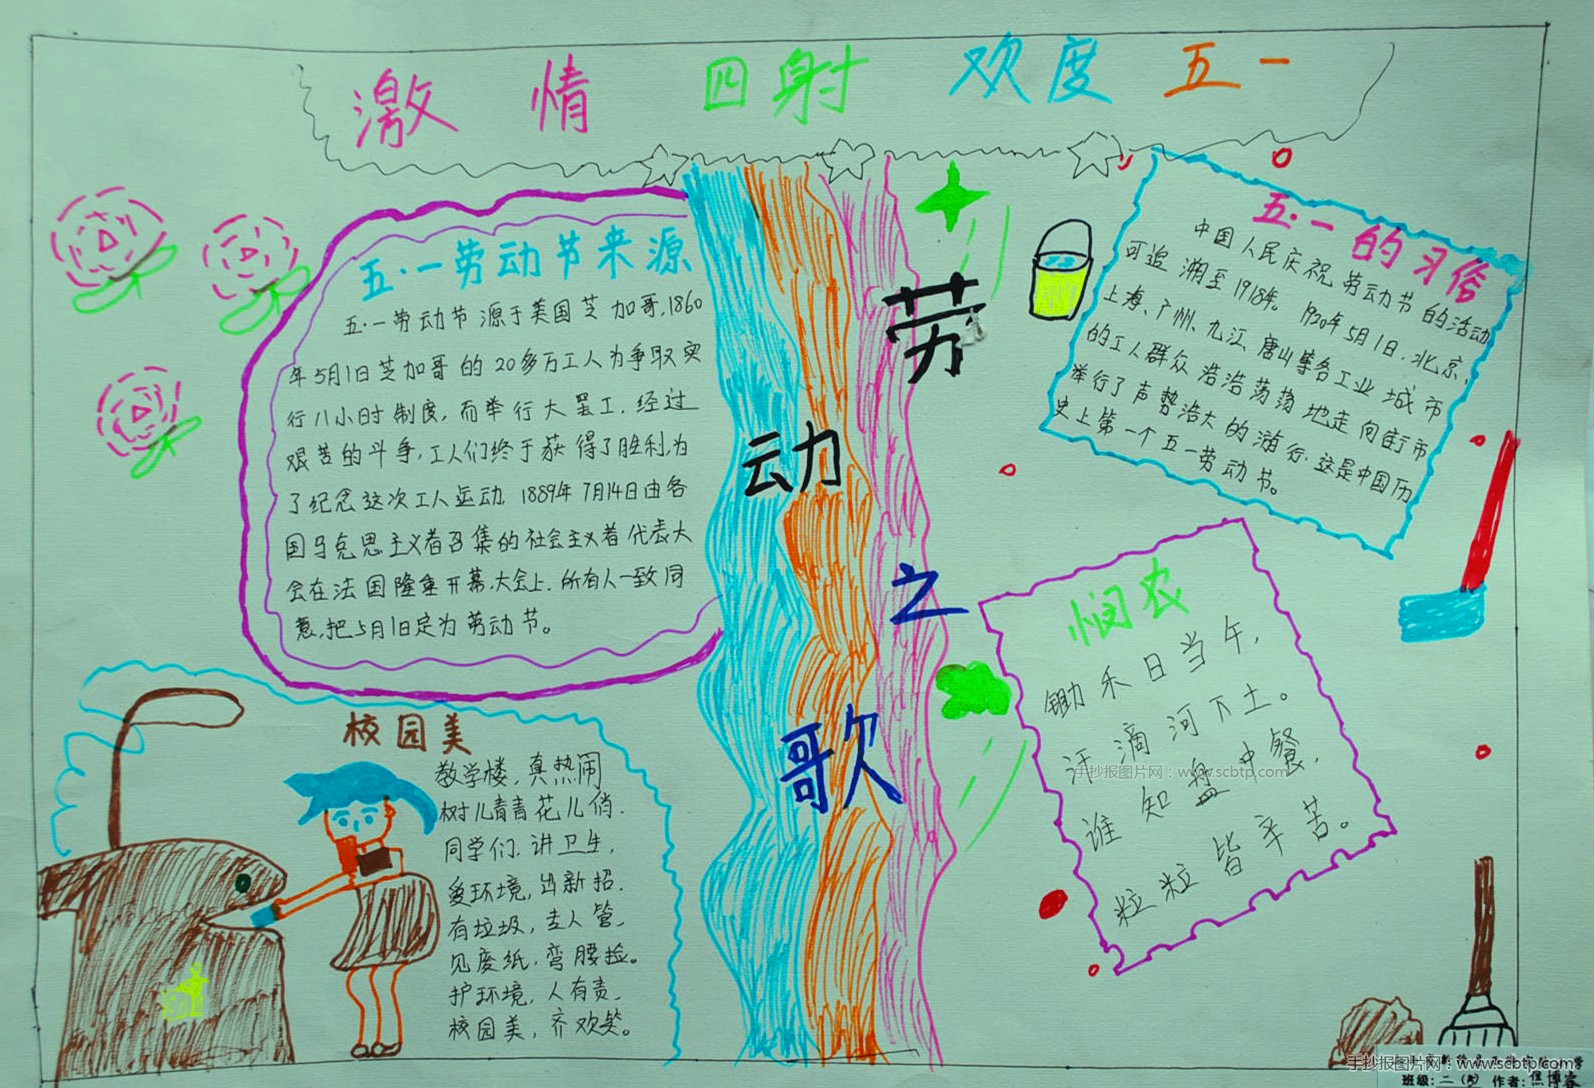 激情四射 欢度五一
五·一劳动节来源
五·一劳动节源于美国芝加哥,1860
年5月1日芝加哥的20多万工人为争取实
行八小时制度,而举行大罢工.经过
艰苦的斗争,工人们终于获得了胜利,为
了纪念这次工人运动 1889年7月14日由各
国马克思主义者召集的社会主义者代表大
会在法国隆重开幕,大会上.所有人一致同
意,把5月1日定为劳动节。
校园美
教学楼,真热闹
树儿青青花儿俏.
同学们,讲卫生,
爱环境,出新招.
有垃圾,主人管,
见废纸,弯腰捡。
护环境,人有责,
校园美,齐欢笑。
劳
动
之
歌
五·一的习俗
中国人民庆祝劳动节的活动
可追溯至1918年。1920年5月1日,北京、
上海、广州、九江、唐山等各工业城市
的工人群众浩浩荡荡地走向街市
举行了声势浩大的游行,这是中国历
史上第一个五一劳动节。
悯农
锄禾日当午,
汗滴河下土。
谁知盘中餐,
粒粒皆辛苦。
手抄报图片网:www.scbtp.com
手抄报图片网:www.scbtp.com
班级:二 作者: